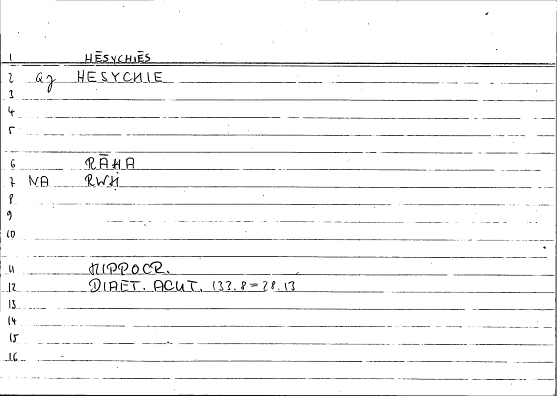 1 HĒSYCHIĒS
2 Gg HESYCHIE
3
4
5
6 RĀḤA
7 NA RWḤ
8
9
10
11 HIPPOCR.
12 DIAET. ACUT. 133.8=28.13
13
14
15
16